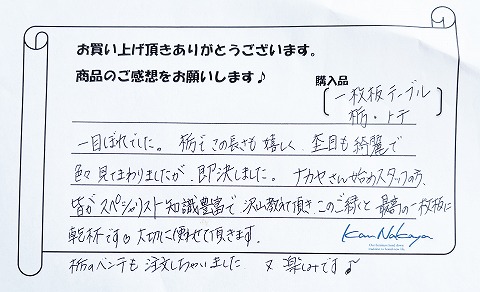 お買い上げ頂きありがとうございます。
商品のご感想をお願いします♪
購入品
一枚板テーブル
栃・トチ
一目ぼれでした。栃でこの長さも嬉しく、杢目も綺麗で
色々見てまわりましたが、即決しました。ナカヤさん始めスタッフの方、
皆がスペシャリスト知識豊富で沢山教えて頂き、このご縁と最高の一枚板に
乾杯です。大切に使わせて頂きます。
Kami Nakaya
栃のベンチも注文しちゃいました 又楽しみです♪